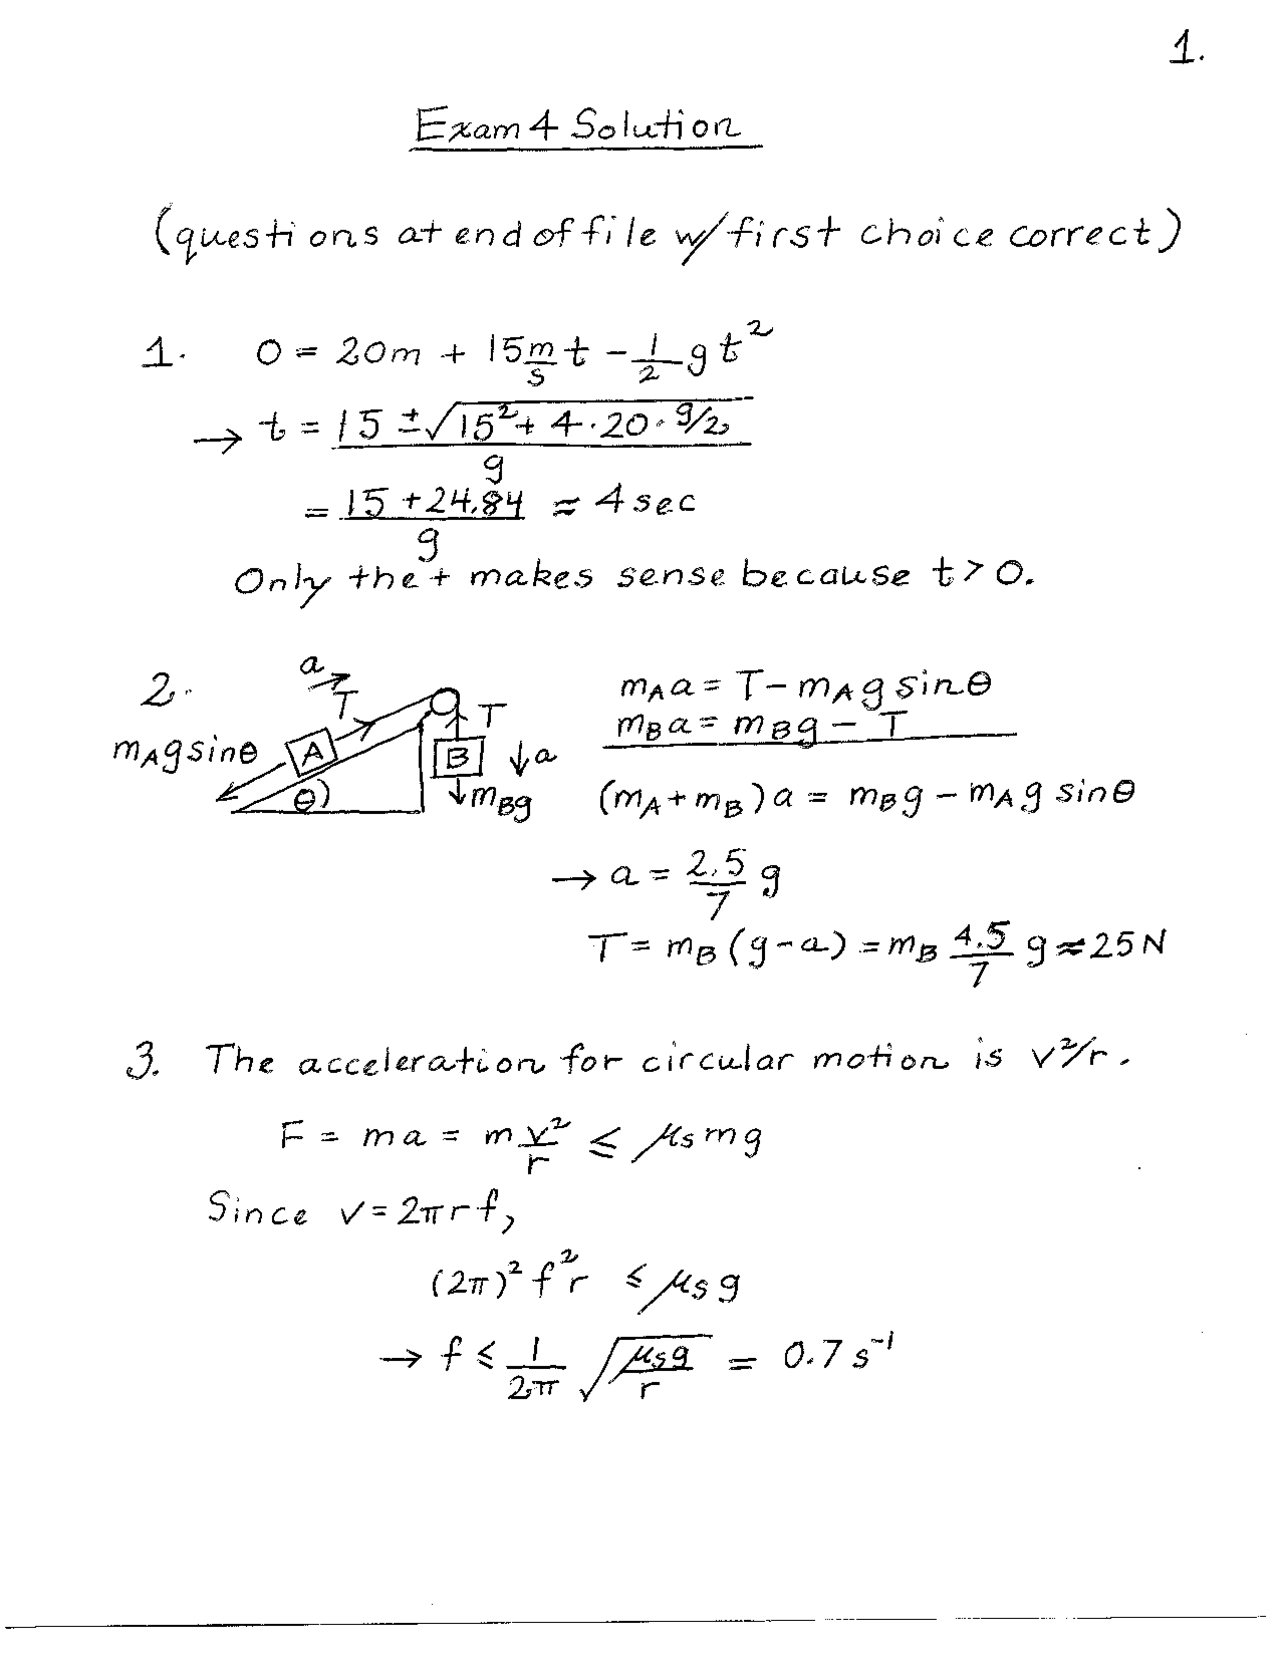 1.
Exam 4 Solution
(questions at end of file w/ first choice correct)
1. 0 = 20m + 15 m/s t - 1/2 g t²
→ t = (15 ± √(15² + 4·20·g/2)) / g
= (15 + 24.84) / g ≈ 4 sec
Only the + makes sense because t > 0.
2.
a
T
T
m_A g sinθ
A
B
↓a
θ
↓m_B g
m_A a = T - m_A g sinθ
m_B a = m_B g - T
(m_A + m_B) a = m_B g - m_A g sinθ
→ a = 2.5/7 g
T = m_B (g - a) = m_B 4.5/7 g ≈ 25 N
3. The acceleration for circular motion is v²/r.
F = ma = m v²/r ≤ μ_s mg
Since v = 2πrf,
(2π)² f² r ≤ μ_s g
→ f ≤ 1/2π √(μ_s g / r) = 0.7 s⁻¹